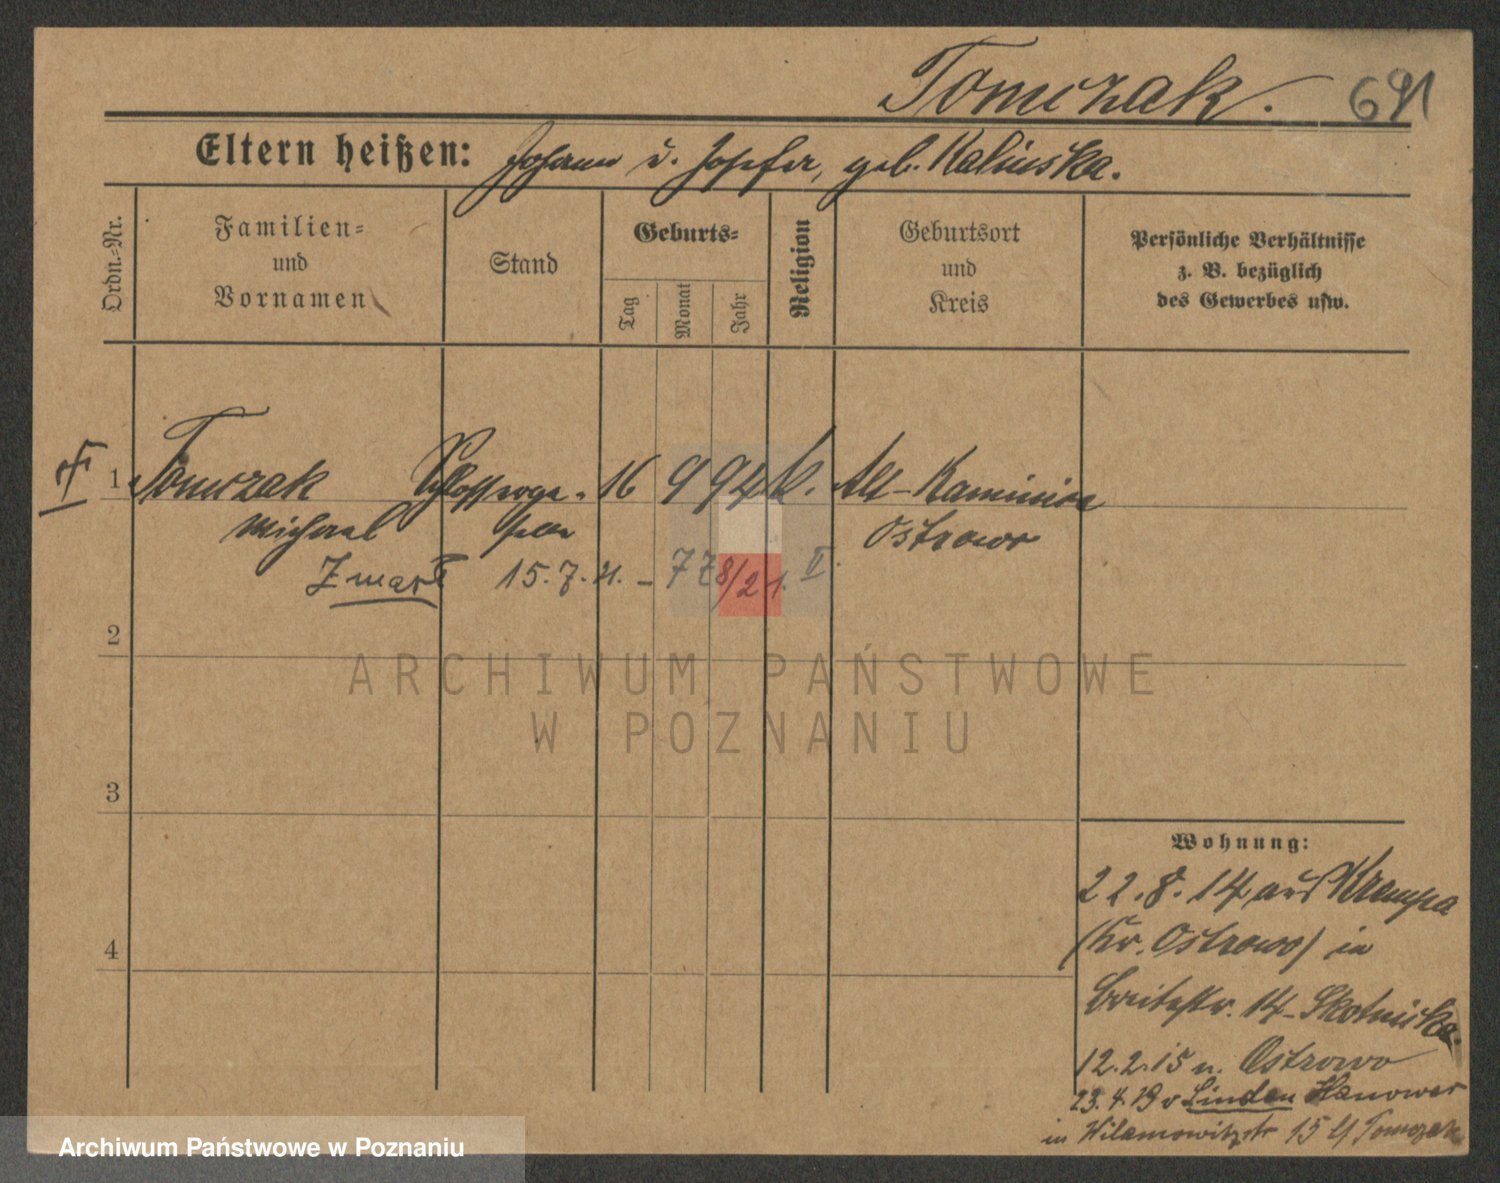 Tomczak. 691
Eltern heißen: Johann u. Josefa, geb. Kalinska.
Ordn.-Nr.
Familien-
und
Vornamen
Stand
Geburts-
Tag
Monat
Jahr
Religion
Geburtsort
und
Kreis
Persönliche Verhältnisse
z. B. bezüglich
des Gewerbes usw.
1 Tomczak Schlosserge- 16 9 94 k. Alt-Kaminice
Michael selle Ostrowo
Zmarł 15.7.21. - 778/21. II
2
ARCHIWUM PAŃSTWOWE
W POZNANIU
3
4
Wohnung:
22.8.14 aus Krempa
(Kr. Ostrowo) in
Breitestr. 14 - Skotnicka.
12.2.15 n. Ostrowo
23.4.19 v Linden Hanower
in Wilamowitzstr 15 Tomczak
Archiwum Państwowe w Poznaniu